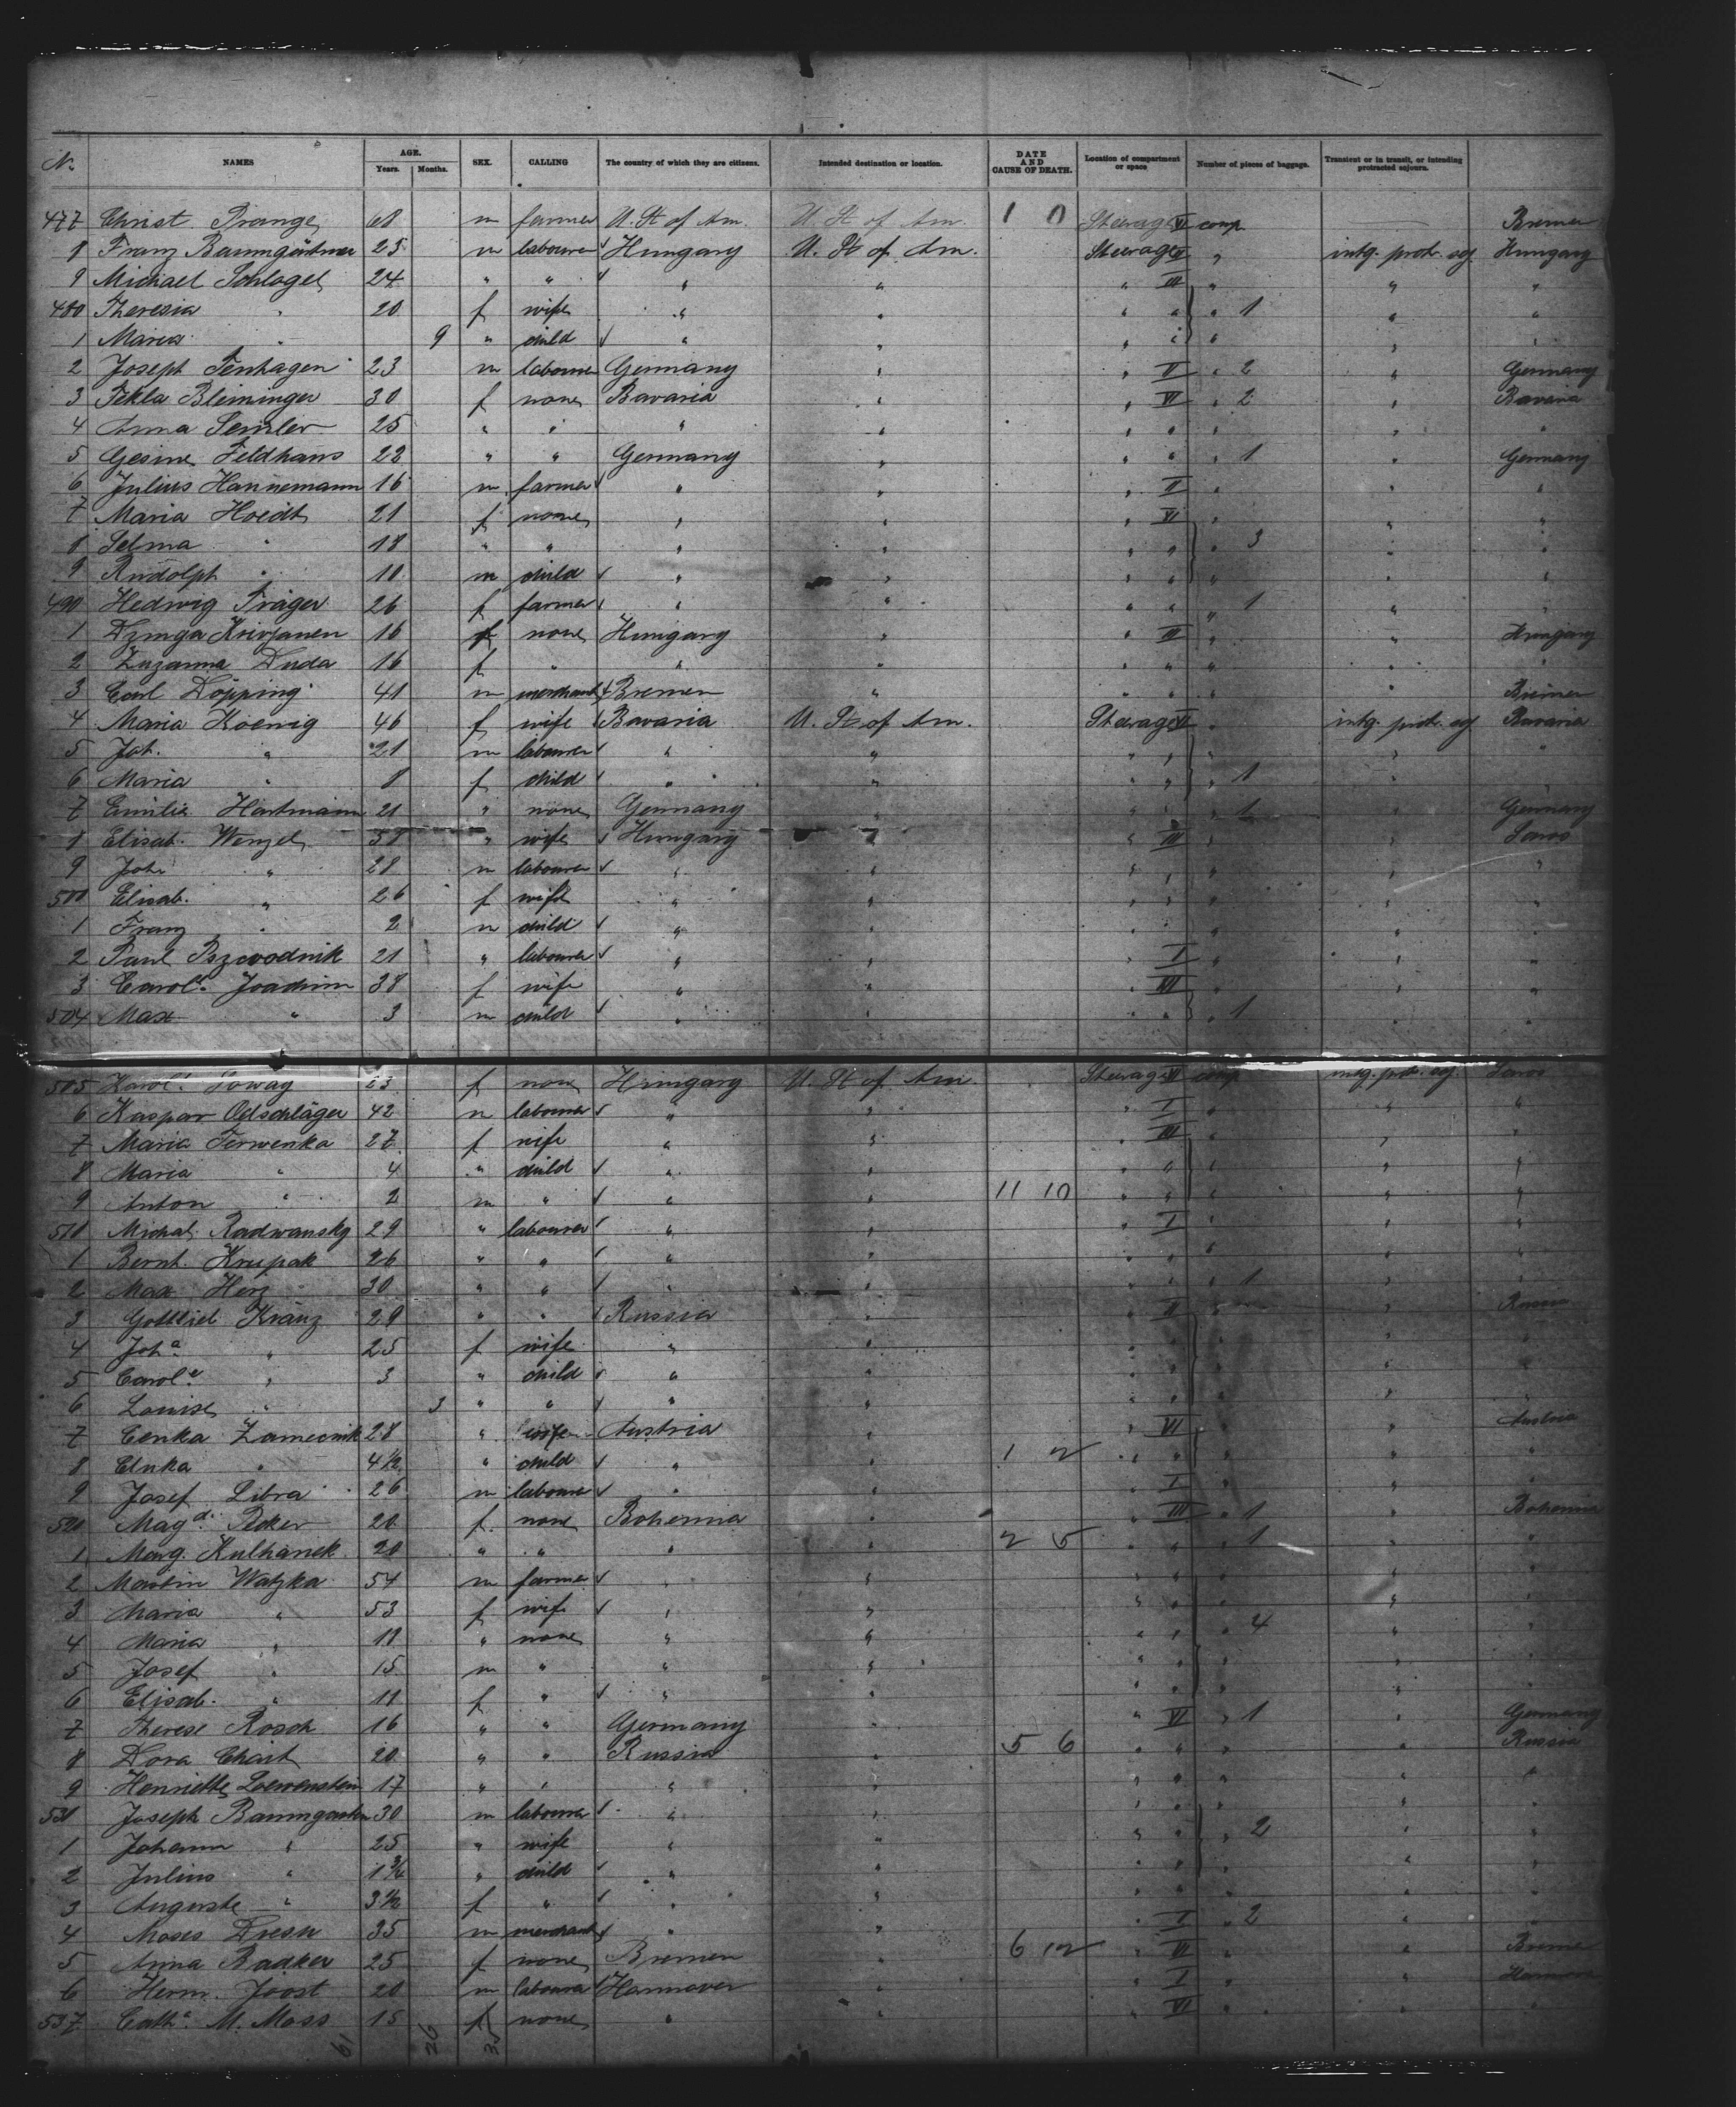 No. NAMES AGE. Years. Months. SEX. CALLING The country of which they are citizens. Intended destination or location. DATE AND CAUSE OF DEATH. Location of compartment or space Number of pieces of baggage. Transient or in transit, or intending protracted sojourn.
477 Christ Prange 68 m farmer U. St of Am. U. St of Am. 1 0 Steerage VI comp. Bremen
8 Franz Baumgärtner 25 m labourer Hungary U. St of Am. Steerage II " intg. protr. soj. Hungary
9 Michael Schlagel 24 " " " " " III " " "
480 Theresia " 20 f wife " " " " " 1 " "
1 Maria " 9 " child " " " " " " "
2 Joseph Tenhagen 23 m labourer Germany " " II " 2 " Germany
3 Tekla Bleininger 30 f none Bavaria " " VI " 2 " Bavaria
4 Anna Semler 25 " " " " " " " " "
5 Gesine Feldhaus 22 " " Germany " " " " 1 " Germany
6 Julius Hannemann 16 m farmer " " " II " " "
7 Maria Hoedt 21 f none " " " VI " " "
8 Selma " 18 " " " " " " " 3 " "
9 Rudolph " 10 m child " " " " " " "
490 Hedwig Präger 26 f farmer " " " " " 1 " "
1 Dzinga Krivjanen 16 f none Hungary " " III " " Hungary
2 Zuzanna Duda 16 f " " " " " " " "
3 Carl Döpping 41 m merchant Bremen " " " " " Bremen
4 Maria Koenig 46 f wife Bavaria U. St of Am. Steerage VI " intg. protr. soj Bavaria
5 Joh. " 21 m labourer " " " " " " "
6 Maria " 8 f child " " " " " 1 " "
7 Emilie Hartmann 21 " none Germany " " " " 1 " Germany
8 Elisab. Wenzel 58 " wife Hungary " " III " " Saros
9 Joh. " 28 m labourer " " " " " " "
500 Elisab. " 26 f wife " " " " " " "
1 Franz " 2 m child " " " " " " "
2 Paul Pszwodnik 21 " labourer " " " I " " "
3 Carol.ᵉ Joachim 38 f wife " " " VI " " "
504 Max " 3 m child " " " " " 1 " "
505 Karol. Soway 23 f none Hungary U. St of Am. Steerage VI comp intg. protr. soj. Saros
6 Kaspar Oelschläger 42 m labourer " " " I " " "
7 Maria Terwenka 27 f wife " " " III " " "
8 Maria " 4 " child " " " " " " "
9 Anton " 2 m " " " 11 10 " " " " "
510 Michal Radwansky 29 " labourer " " " I " " "
1 Bernh. Krupak 26 " " " " " " " " "
2 Max Herz 30 " " " " " " " 1 " "
3 Gottlieb Kranz 29 " " Russia " " II " " Russia
4 Joh.ᵃ " 25 f wife " " " " " " "
5 Carol.ᵉ " 3 " child " " " " " " "
6 Louise " 3 " " " " " " " " "
7 Cenka Zamecnik 28 " wife Austria " " VI " " Austria
8 Elnka " 4½ " child " " 1 2 " " " " "
9 Josef Libra 26 m labourer " " " I " " "
520 Magᵈ. Pecker 20 f. none Bohemia " " III " 1 " Bohemia
1 Marg. Kulhanek 20 " " " " 2 5 " " " 1 " "
2 Martin Watzka 54 m farmer " " " " " " "
3 Maria " 53 f wife " " " " " " "
4 Maria " 18 " none " " " " " 4 " "
5 Josef " 15 m " " " " " " " "
6 Elisab. " 11 f " " " " " " " "
7 Therese Rosch 16 " " Germany " " VI " 1 " Germany
8 Dora Chait 20 " " Russia " 5 6 " " " " Russia
9 Henriette Loewenstein 17 " " " " " " " " "
530 Joseph Baumgarten 30 m labourer " " " " " " "
1 Johann " 25 " wife " " " " " 2 " "
2 Julius " 1¾ " child " " " " " " "
3 Auguste " 3½ f " " " " " " " "
4 Moses Dresn 35 m merchant " " " I " 2 " "
5 Anna Radker 25 f none Bremen " 6 12 " VI " " Bremen
6 Herm. Joost 20 m labourer Hannover " " I " " Hannover
537 Cath.ᵃ M. Moss 15 f none " " " VI " " "
61 26 35